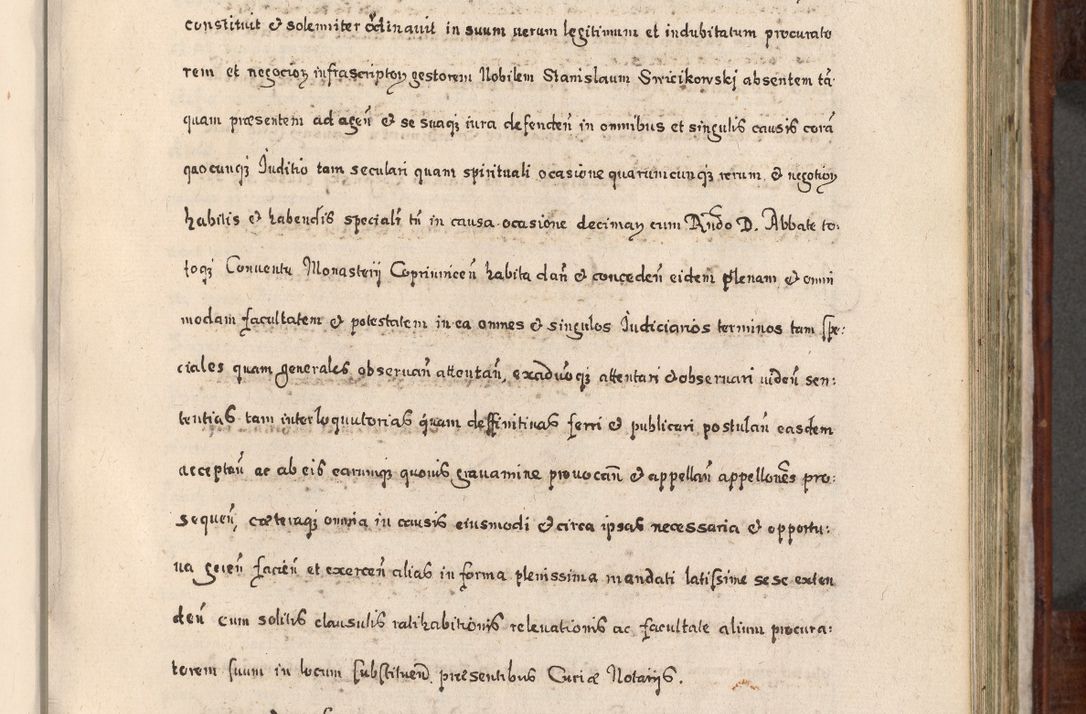 constituit et solemniter ordinavit in suum verum legitimum et indubitatum procurato
rem et negocioꝝ infrascriptoꝝ gestorem Nobilem Stanislaum Swicikowskj absentem tã
quam præsentem ad agen̄ et se suaqꝫ iura defenden̄ in omnibus et singulis causis corã
quocunqꝫ Iuditio tam seculari quam spirituali ocasione quarumcunqꝫ rerum et negotioꝝ
habitis et habendis speciali tñ in causa ocasione decimaꝝ cum Rñdo D. Abbate to:
toqꝫ Conventu Monasterij Coprivnicen̄ habita dan̄ et conceden̄ eidem plenam et omni
modam facultatem et potestatem in ea omnes et singulos Iudiciarios terminos tam spe:
ciales quam generales observan̄ attentan̄, exaduõqꝫ attentari et observari viden̄ sen:
tentias tam interloquutorias quam deffinitivas ferri et publicari postulan̄ easdem
acceptan̄ ac ab eis earumqꝫ quovis gravamine provocan̄ et appellan̄ appellones pro:
sequen̄, cæteraqꝫ omnia in causis eiusmodi et circa ipsas necessaria et opportu:
na geren̄ facien̄ et exercen̄ alias in forma plenissima mandati latissime sese exten
den̄ cum solitis clausulis ratihabitionis relevationis ac facultate alium procura:
torem suum in locum substituen̄ præsentibus Curiæ Notarijs.